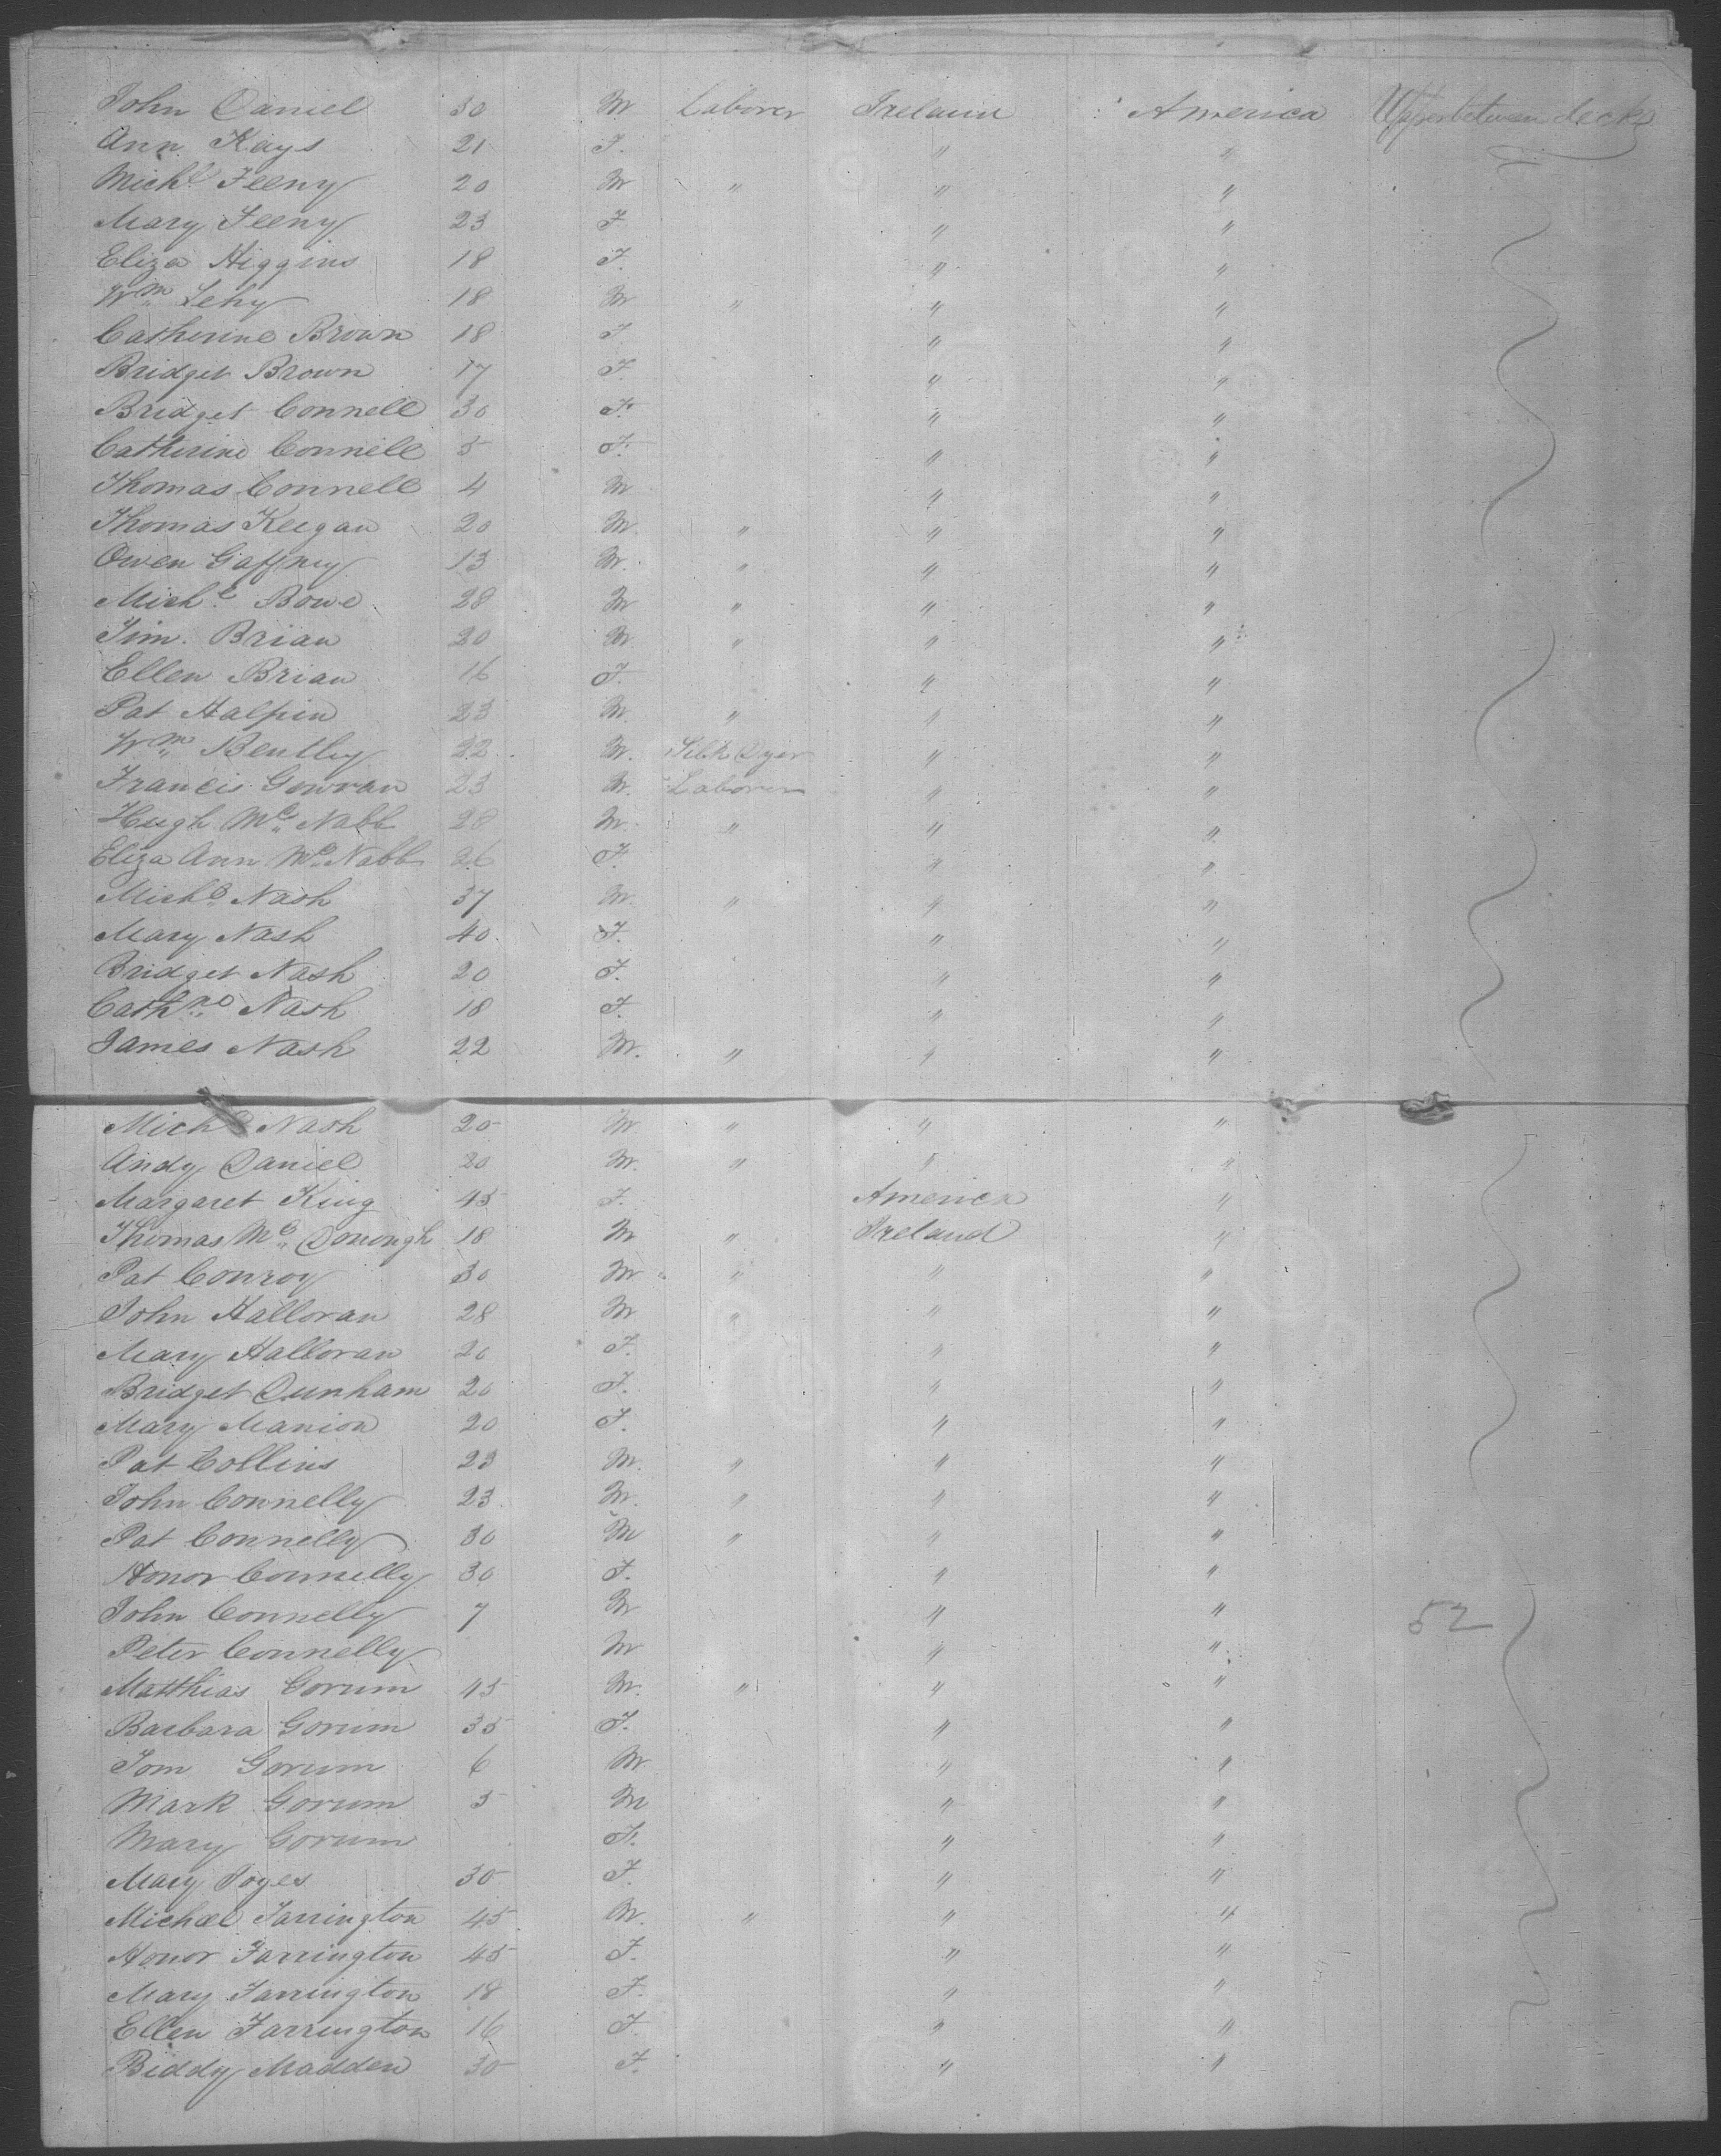 John Daniel 30 M Laborer Ireland America Upper between decks
Ann Kays 21 F. " "
Mich.l Feeny 20 M " " "
Mary Feeny 23 F " "
Eliza Higgins 18 F. " "
Wm Lehy 18 M " " "
Catherine Brown 18 F " "
Bridget Brown 17 F. " "
Bridget Connell 30 F. " "
Catherine Connell 5 F. " "
Thomas Connell 4 M " "
Thomas Keegan 20 M. " " "
Owen Gaffney 13 M. " " "
Mich.l Bowe 28 M " " "
Tim. Brian 20 M " " "
Ellen Brian 16 F. " "
Pat Halpin 23 M. " " "
Wm Bentley 22 M. Silk Dyer " "
Francis Gowran 23 M. Laborer " "
Hugh Mc Nabb 28 M. " " "
Eliza Ann Mc Nabb 26 F. " "
Mich.l Nash 37 M. " " "
Mary Nash 40 F. " "
Bridget Nash 20 F. " "
Cathne Nash 18 F. " "
James Nash 22 M. " " "
Mich.l Nash 20 M. " " "
Andy Daniel 20 M. " " "
Margaret King 45 F. America "
Thomas Mc Donough 18 M " Ireland "
Pat Conroy 30 M " " "
John Halloran 28 M " " "
Mary Halloran 20 F. " "
Bridget Dunham 20 F. " "
Mary Manion 20 F. " "
Pat Collins 23 M. " " "
John Connelly 23 M. " " "
Pat Connelly 30 M " " "
Honor Connelly 30 F. " "
John Connelly 7 M " " 52
Peter Connelly M " "
Matthias Gorum 45 M. " " "
Barbara Gorum 35 F. " "
Tom Gorum 6 M " "
Mark Gorum 5 M " "
Mary Gorum F. " "
Mary 30 F. " "
Michael Farrington 45 M. " " "
Honor Farrington 45 F. " "
Mary Farrington 18 F. " "
Ellen Farrington 16 F. " "
Biddy Madden 30 F. " "